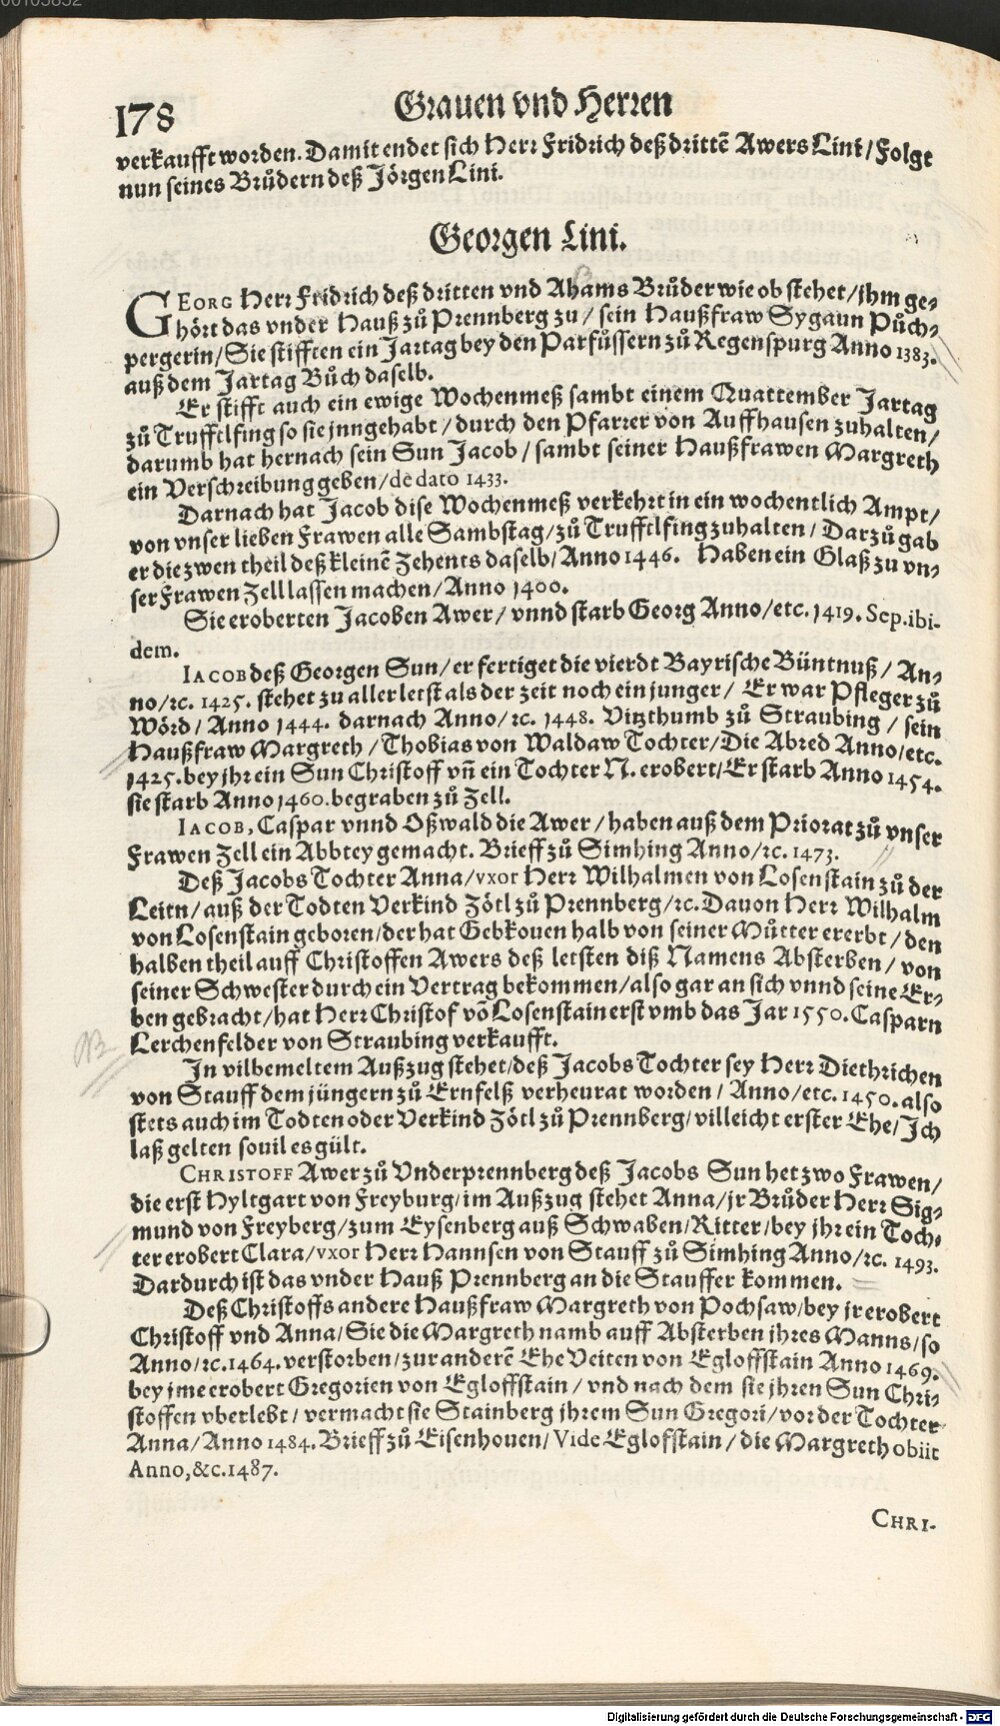 178
Grauen vnd Herren
verkaufft worden. Damit endet sich Herr Fridrich deß drittẽ Awers Lini / Folgt
nun seines Brůdern deß Jörgen Lini.
Georgen Lini.
GEORG Herr Fridrich deß dritten vnd Ahams Brůder wie ob stehet / jhm ge-
hört das vnder Hauß zů Prennberg zu / sein Haußfraw Sygaun Půch-
pergerin / Sie stifften ein Jartag bey den Parfůssern zů Regenspurg Anno 1383.
auß dem Jartag Bůch daselb.
Er stifft auch ein ewige Wochenmeß sambt einem Quattember Jartag
zů Trufftlfing so sie jnngehabt / durch den Pfarrer von Auffhausen zuhalten /
darumb hat hernach sein Sun Jacob / sambt seiner Haußfrawen Margreth
ein Verschreibung geben / de dato 1433.
Darnach hat Jacob dise Wochenmeß verkehrt in ein wochentlich Ampt /
von vnser lieben Frawen alle Sambstag / zů Trufftlfing zuhalten / Darzů gab
er die zwen theil deß kleinẽ Zehents daselb / Anno 1446. Haben ein Glaß zu vn-
ser Frawen Zell lassen machen / Anno 1400.
Sie eroberten Jacoben Awer / vnnd starb Georg Anno / etc. 1419. Sep. ibi-
dem.
IACOB deß Georgen Sun / er fertiget die vierdt Bayrische Büntnuß / An-
no / ꝛc. 1425. stehet zu aller letst als der zeit noch ein junger / Er war Pfleger zů
Wörd / Anno 1444. darnach Anno / ꝛc. 1448. Vitzthumb zů Straubing / sein
Haußfraw Margreth / Thobias von Waldaw Tochter / Die Abred Anno / etc.
1425. bey jhr ein Sun Christoff vñ ein Tochter N. erobert / Er starb Anno 1454.
sie starb Anno 1460. begraben zů Zell.
IACOB, Caspar vnnd Oßwald die Awer / haben auß dem Priorat zů vnser
Frawen Zell ein Abbtey gemacht. Brieff zů Simhing Anno / ꝛc. 1473.
Deß Jacobs Tochter Anna / vxor Herr Wilhalmen von Losenstain zů der
Leitn / auß der Todten Verkind Zötl zů Prennberg / ꝛc. Dauon Herr Wilhalm
von Losenstain geboren / der hat Gebkouen halb von seiner Můtter ererbt / den
halben theil auff Christoffen Awers deß letsten diß Namens Absterben / von
seiner Schwester durch ein Vertrag bekommen / also gar an sich vnnd seine Er-
ben gebracht / hat Herr Christof võ Losenstain erst vmb das Jar 1550. Casparn
Lerchenfelder von Straubing verkaufft.
NB
In vilbemeltem Außzug stehet / deß Jacobs Tochter sey Herr Diethrichen
von Stauff dem jüngern zů Ernfelß verheurat worden / Anno / etc. 1450. also
stets auch im Todten oder Verkind Zötl zů Prennberg / villeicht erster Ehe / Jch
laß gelten souil es gült.
CHRISTOFF Awer zů Vnderprennberg deß Jacobs Sun het zwo Frawen /
die erst Hyltgart von Freyburg / im Außzug stehet Anna / jr Brůder Herr Sig-
mund von Freyberg / zum Eysenberg auß Schwaben / Ritter / bey jhr ein Toch-
ter erobert Clara / vxor Herr Hannsen von Stauff zů Simhing Anno / ꝛc. 1493.
Dardurch ist das vnder Hauß Prennberg an die Stauffer kommen.
Deß Christoffs andere Haußfraw Margreth von Pochsaw / bey jr erobert
Christoff vnd Anna / Sie die Margreth namb auff Absterben jhres Manns / so
Anno / ꝛc. 1464. verstorben / zur anderẽ Ehe Veiten von Egloffstain Anno 1469.
bey jme erobert Gregorien von Egloffstain / vnd nach dem sie jhren Sun Chri-
stoffen vberlebt / vermacht sie Stainberg jhrem Sun Gregori / vor der Tochter
Anna / Anno 1484. Brieff zů Eisenhouen / Vide Eglofstain / die Margreth obiit
Anno, &c. 1487.
CHRI-
Digitalisierung gefördert durch die Deutsche Forschungsgemeinschaft - DFG